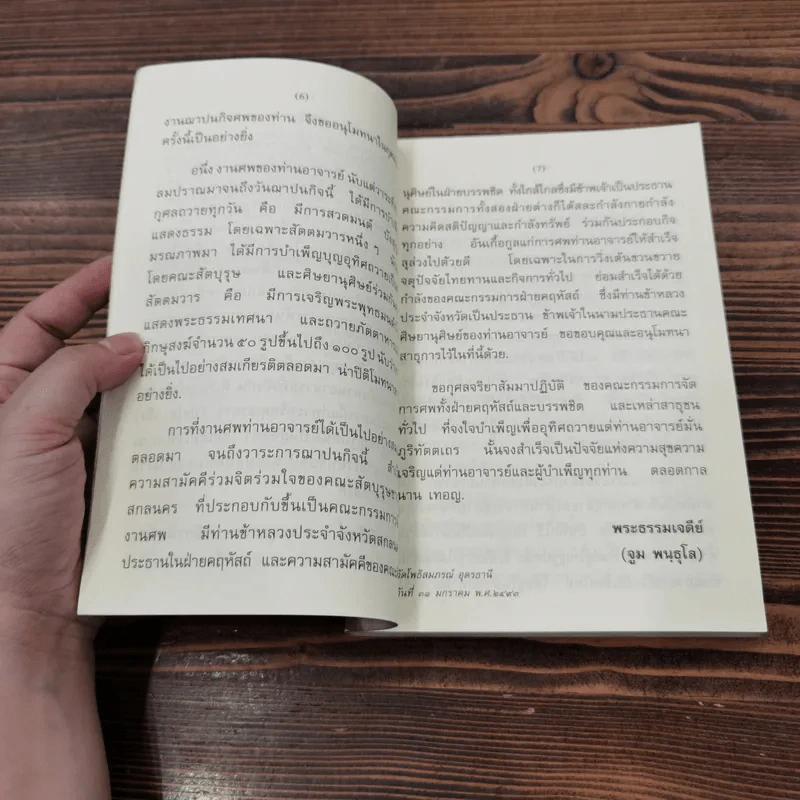 (6)
งานฌาปนกิจศพของท่าน จึงขออนุโมทนาใน
ครั้งนี้เป็นอย่างยิ่ง
อนึ่ง งานศพของท่านอาจารย์ นับแต่วาระ
ลมปราณมาจนถึงวันฌาปนกิจนี้ ได้มีการ
กุศลถวายทุกวัน คือ มีการสวดมนต์
แสดงธรรม โดยเฉพาะสัตตมวารหนึ่ง ๆ
มรณภาพมา ได้มีการบำเพ็ญบุญอุทิศถวาย
โดยคณะสัตบุรุษ และศิษยานุศิษย์ร่วมกัน
สัตตมวาร คือ มีการเจริญพระพุทธมนต์
แสดงพระธรรมเทศนา และถวายภัตตาหาร
ภิกษุสงฆ์จำนวน ๕๐ รูปขึ้นไปถึง ๑๐๐ รูป นับว่า
ได้เป็นไปอย่างสมเกียรติตลอดมา น่าปีติโมทนา
อย่างยิ่ง.
การที่งานศพท่านอาจารย์ได้เป็นไปอย่าง
ตลอดมา จนถึงวาระการฌาปนกิจนี้
ความสามัคคีร่วมจิตร่วมใจของคณะสัตบุรุษ
สกลนคร ที่ประกอบกับขึ้นเป็นคณะกรรมการ
งานศพ มีท่านข้าหลวงประจำจังหวัดสกลน
ประธานในฝ่ายคฤหัสถ์ และความสามัคคีของคณะ
(7)
นุศิษย์ในฝ่ายบรรพชิต ทั้งใกล้ไกลซึ่งมีข้าพเจ้าเป็นประธาน
คณะกรรมการทั้งสองฝ่ายต่างก็ได้สละกำลังกายกำลัง
ความคิดสติปัญญาและกำลังทรัพย์ ร่วมกันประกอบกิจ
ทุกอย่าง อันเกื้อกูลแก่การศพท่านอาจารย์ให้สำเร็จ
ลุล่วงไปด้วยดี โดยเฉพาะในการวิ่งเต้นขวนขวาย
จตุปัจจัยไทยทานและกิจการทั่วไป ย่อมสำเร็จได้ด้วย
กำลังของคณะกรรมการฝ่ายคฤหัสถ์ ซึ่งมีท่านข้าหลวง
ประจำจังหวัดเป็นประธาน ข้าพเจ้าในนามประธานคณะ
ศิษยานุศิษย์ของท่านอาจารย์ ขอขอบคุณและอนุโมทนา
สาธุการไว้ในที่นี้ด้วย.
ขอกุศลจริยาสัมมาปฏิบัติ ของคณะกรรมการจัด
การศพทั้งฝ่ายคฤหัสถ์และบรรพชิต และเหล่าสาธุชน
ทั่วไป ที่จงใจบำเพ็ญเพื่ออุทิศถวายแด่ท่านอาจารย์มั่น
ภูริทัตตเถร นั้นจงสำเร็จเป็นปัจจัยแห่งความสุขความ
เจริญแด่ท่านอาจารย์และผู้บำเพ็ญทุกท่าน ตลอดกาล
นาน เทอญ.
พระธรรมเจดีย์
(จูม พนฺธุโล)
วัดโพธิสมภรณ์ อุดรธานี
วันที่ ๓๑ มกราคม พ.ศ.๒๔๙๓